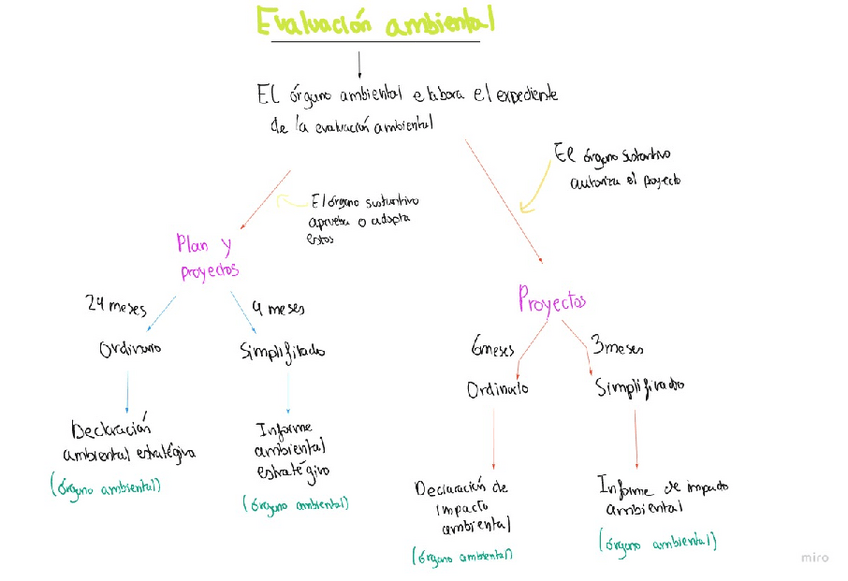 Evaluación ambiental
El órgano ambiental elabora el expediente
de la evaluación ambiental
El órgano sustantivo
autoriza el proyecto
El órgano sustantivo
aprueba o adopta
estos
Plan y
proyectos
24 meses
4 meses
Ordinario
Simplificado
Declaración
ambiental estratégiva
(órgano ambiental)
Informe
ambiental
estratégivo
(órgano ambiental)
Proyectos
6 meses
3 meses
Ordinario
Simplificado
Declaración de
impacto
ambiental
(órgano ambiental)
Informe de impacto
ambiental
(órgano ambiental)
miro